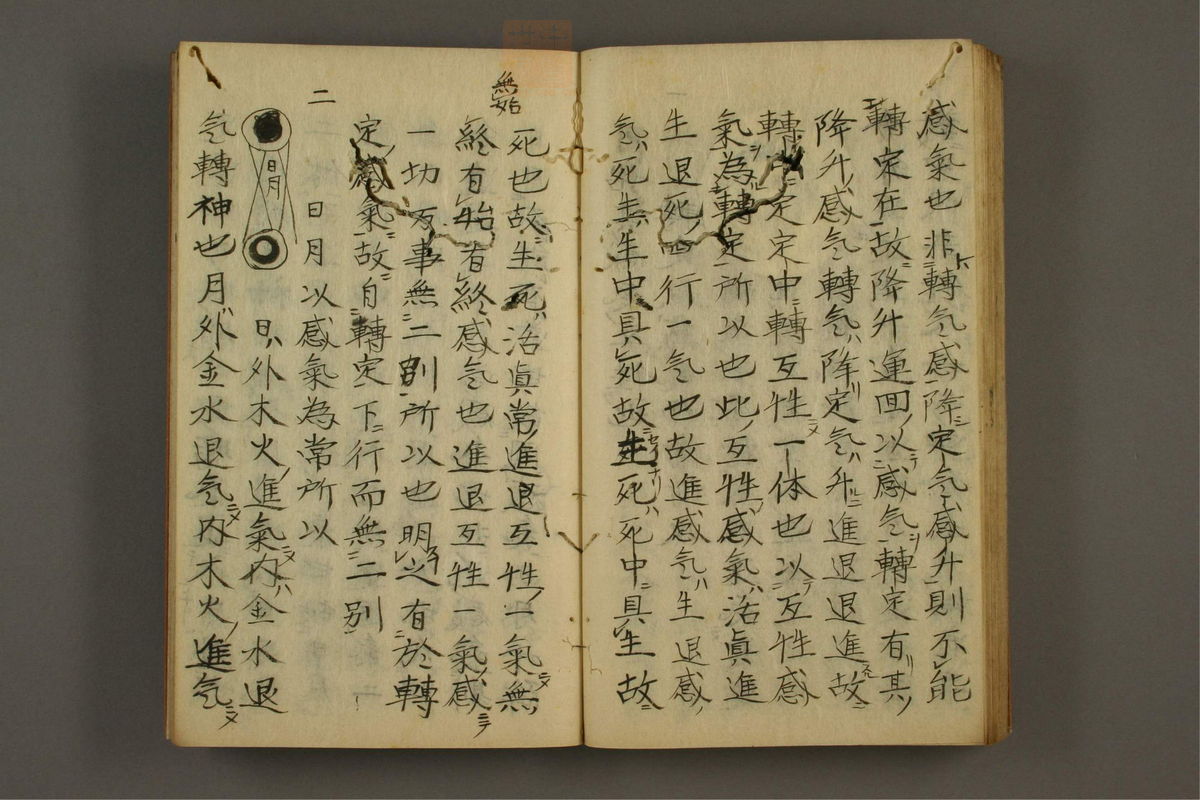 感氣也非轉气感降定气感升則不能
轉定在故降升運回以感气轉定有其
降升感气轉气降定气升進退退進故
轉中定定中轉互性一体也以互性感
氣為轉定所以也此互性感氣活眞進
生退死四行一气也故進感气生退感
气死生生中具死故生死死中具生故
死也故生死活眞常進退互性一氣無
無始
終有始有終感气也進退互性一氣感
一切万事無二別所以也明之有於轉
定感氣故自轉定下行而無二別
二
日月以感氣為常所以
日月
日外木火進氣内金水退
气轉神也月外金水退气内木火進气